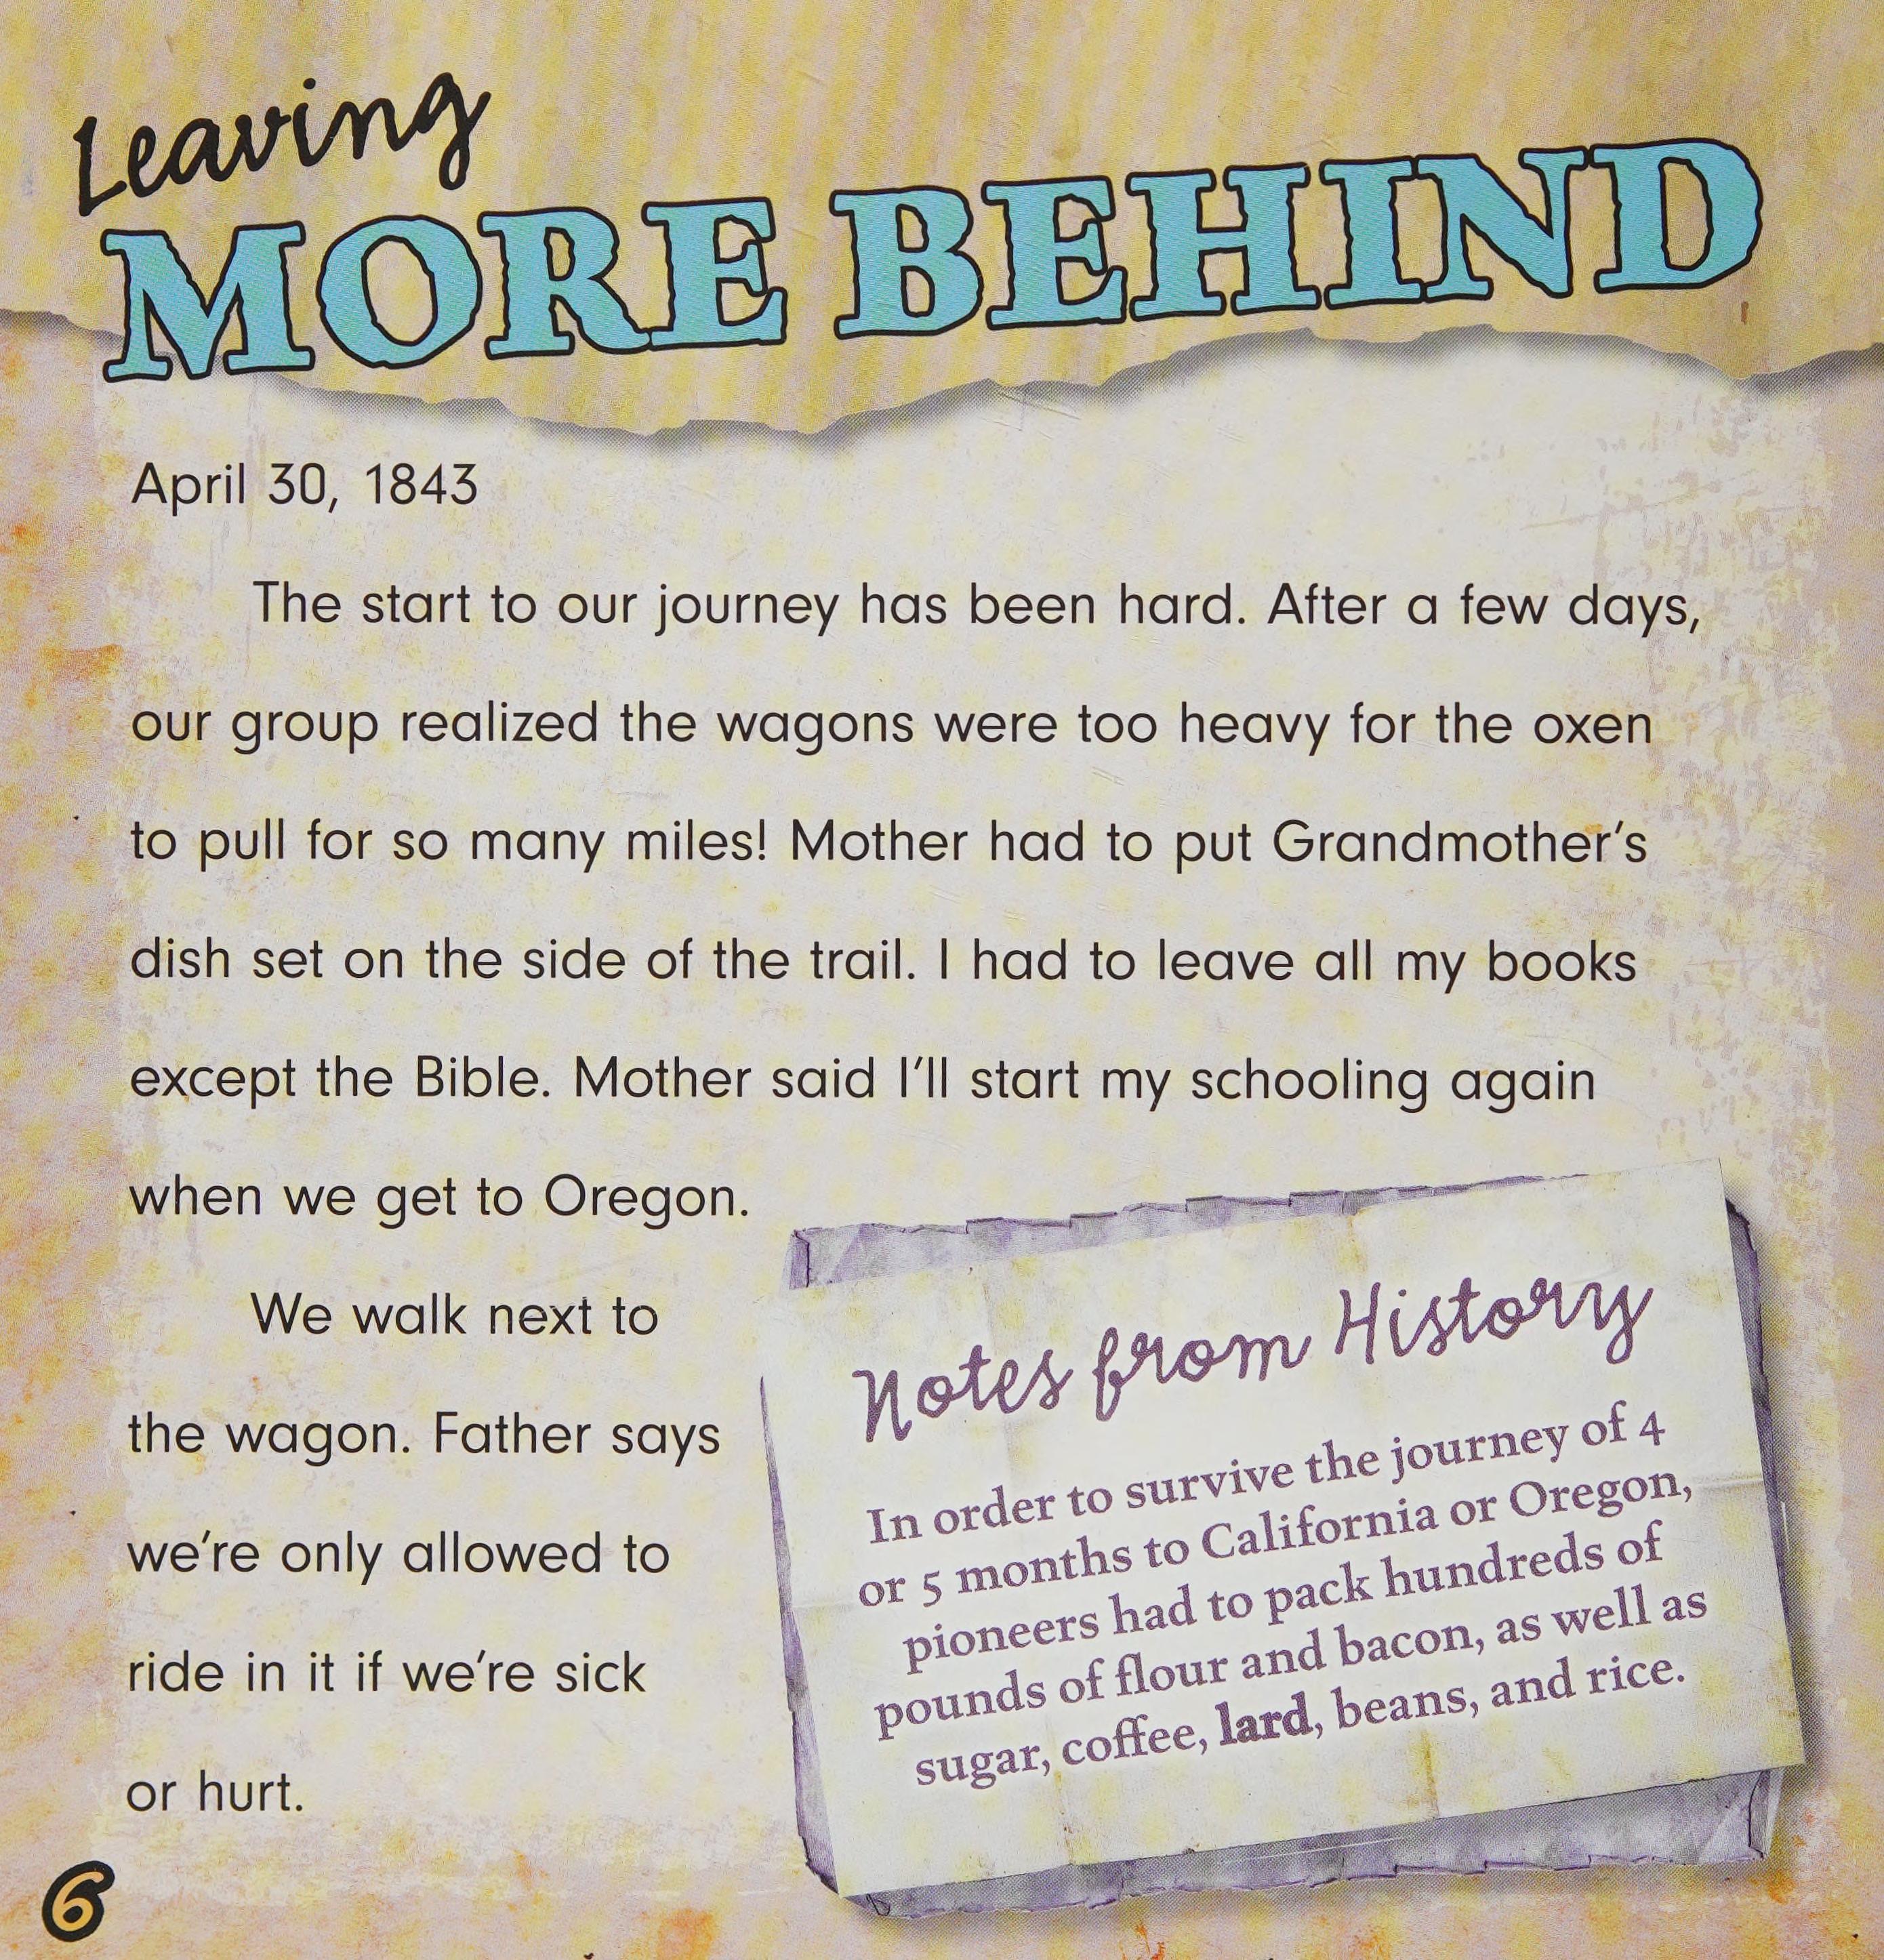 Leaving
MORE BEHIND
April 30, 1843
The start to our journey has been hard. After a few days,
our group realized the wagons were too heavy for the oxen
to pull for so many miles! Mother had to put Grandmother's
dish set on the side of the trail. I had to leave all my books
except the Bible. Mother said I'll start my schooling again
when we get to Oregon.
We walk next to
the wagon. Father says
we're only allowed to
ride in it if we're sick
or hurt.
Notes from History
In order to survive the journey of 4
or 5 months to California or Oregon,
pioneers had to pack hundreds of
pounds of flour and bacon, as well as
sugar, coffee, lard, beans, and rice.
6